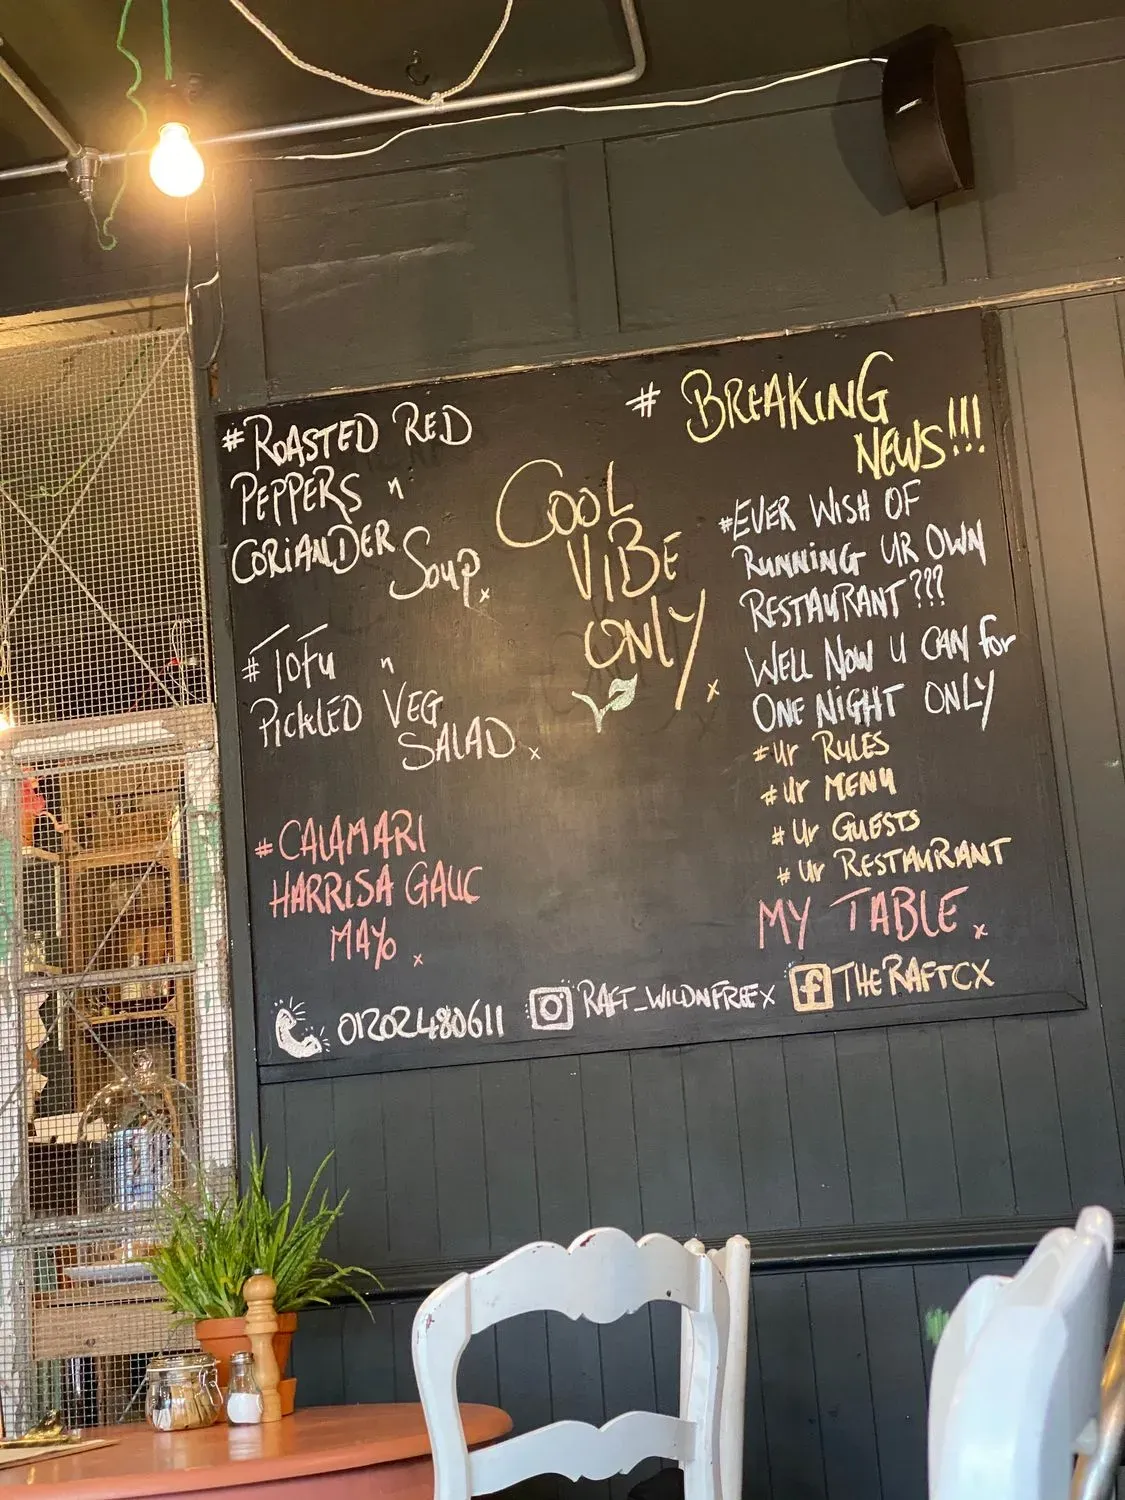 #ROASTED RED
PEPPERS n
CORIANDER
SOUP x
#TOFU n
PICKLED VEG
SALAD x
#CALAMARI
HARRISA GALIC
MAYO x
COOL
VIBE
ONLY x
# BREAKING
NEWS!!!
#EVER WISH OF
RUNNING UR OWN
RESTAURANT???
WELL NOW U CAN for
ONE NIGHT ONLY
#Ur RULES
#Ur MENU
#Ur GUESTS
#Ur RESTAURANT
MY TABLE x
01202480611
RAFT_WILDNFREEX
f THERAFTCX